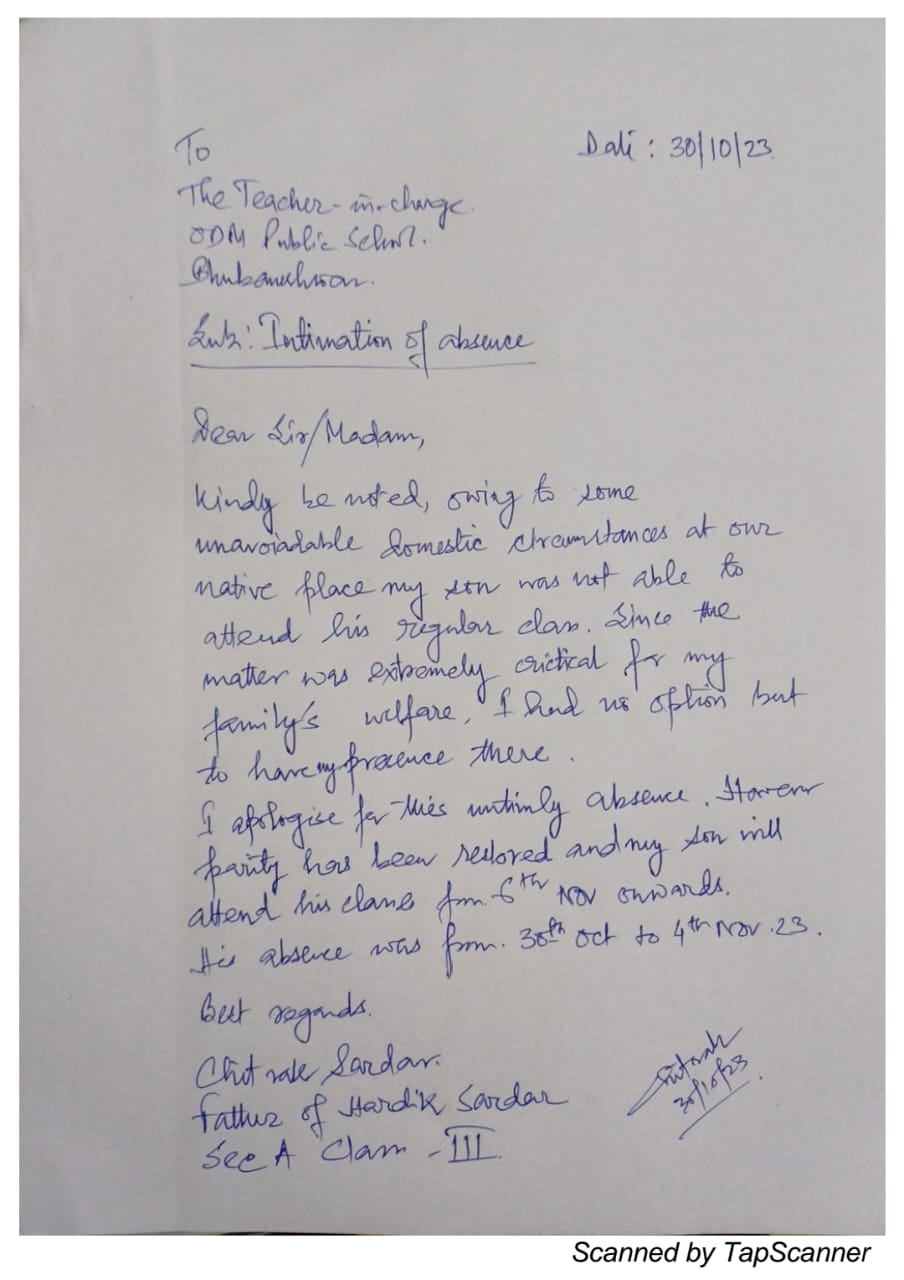 To
Date : 30/10/23
The Teacher-in-charge.
ODM Public School.
Bhubaneshwar.
Sub: Intimation of absence
Dear Sir/Madam,
Kindly be noted, owing to some
unavoiadable domestic circumstances at our
native place my son was not able to
attend his regular class. Since the
matter was extremely crictical for my
family's welfare, I had no option but
to have my presence there.
I apologise for this untimly absence. However
parity has been restored and my son will
attend his classes from 6th Nov onwards.
His absence was from. 30th Oct to 4th Nov. 23.
Best regards.
Sardar.
Father of Hardik Sardar
Sec A Class - III
30/10/23.
Scanned by TapScanner